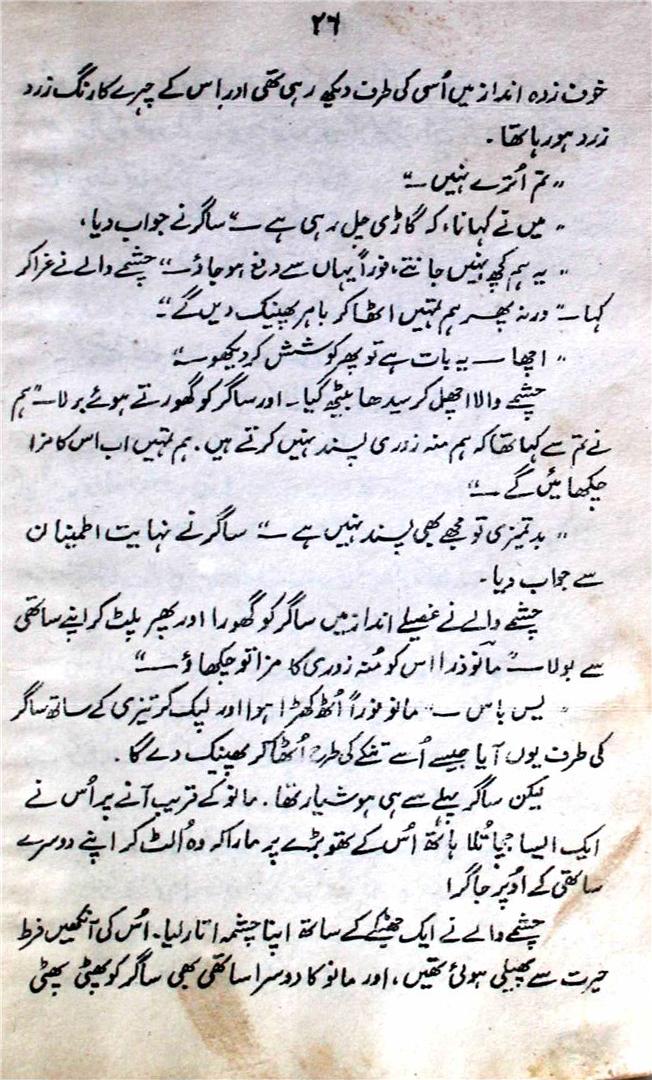 ۲۶
خوف زدہ انداز میں اُسی کی طرف دیکھ رہی تھی اور اس کے چہرے کا رنگ زرد
زرد ہو رہا تھا۔
” تم اترے نہیں ــ “
” میں نے کہا نا، کہ گاڑی چل رہی ہے ــ “ ساگر نے جواب دیا،
” یہ ہم کچھ نہیں جانتے، فوراً یہاں سے دفع ہو جاؤ ــ “ چشمے والے نے غرا کر
کہا ــ ” ورنہ پھر ہم تمہیں اٹھا کر باہر پھینک دیں گے “۔
” اچھا ــ یہ بات ہے تو پھر کوشش کر دیکھو ــ “
چشمے والا اچھل کر سیدھا بیٹھ گیا۔ اور ساگر کو گھورتے ہوئے بولا ــ ” ہم
نے تم سے کہا تھا کہ ہم منہ زوری پسند نہیں کرتے ہیں۔ ہم تمہیں اب اس کا مزا
چکھائیں گے ــ “
” بدتمیزی تو مجھے بھی پسند نہیں ہے ــ “ ساگر نے نہایت اطمینان
سے جواب دیا۔
چشمے والے نے غصیلے انداز میں ساگر کو گھورا اور پھر پلٹ کر اپنے ساتھی
سے بولا ــ ” مانو ذرا اس کو مُنہ زوری کا مزا تو چکھاؤ ــ “
” یس باس ــ “ مانو فوراً اُٹھ کھڑا ہوا اور لپک کر تیزی کے ساتھ ساگر
کی طرف یوں آیا جیسے اُسے تنکے کی طرح اُٹھا کر پھینک دے گا۔
لیکن ساگر پہلے سے ہی ہوشیار تھا۔ مانو کے قریب آنے پر اُس نے
ایک ایسا جچا تُلا ہاتھ اُس کے تھوبڑے پر مارا کہ وہ اُلٹ کر اپنے دوسرے
ساتھی کے اُوپر جا گرا
چشمے والے نے ایک جھٹکے کے ساتھ اپنا چشمہ اتار لیا۔ اُس کی آنکھیں فرط
حیرت سے پھیلی ہوئی تھیں، اور مانو کا دوسرا ساتھی بھی ساگر کو پھٹی پھٹی